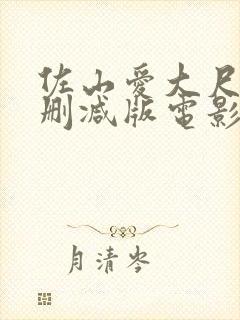 佐山愛大尺
刪減版電影
月清岑